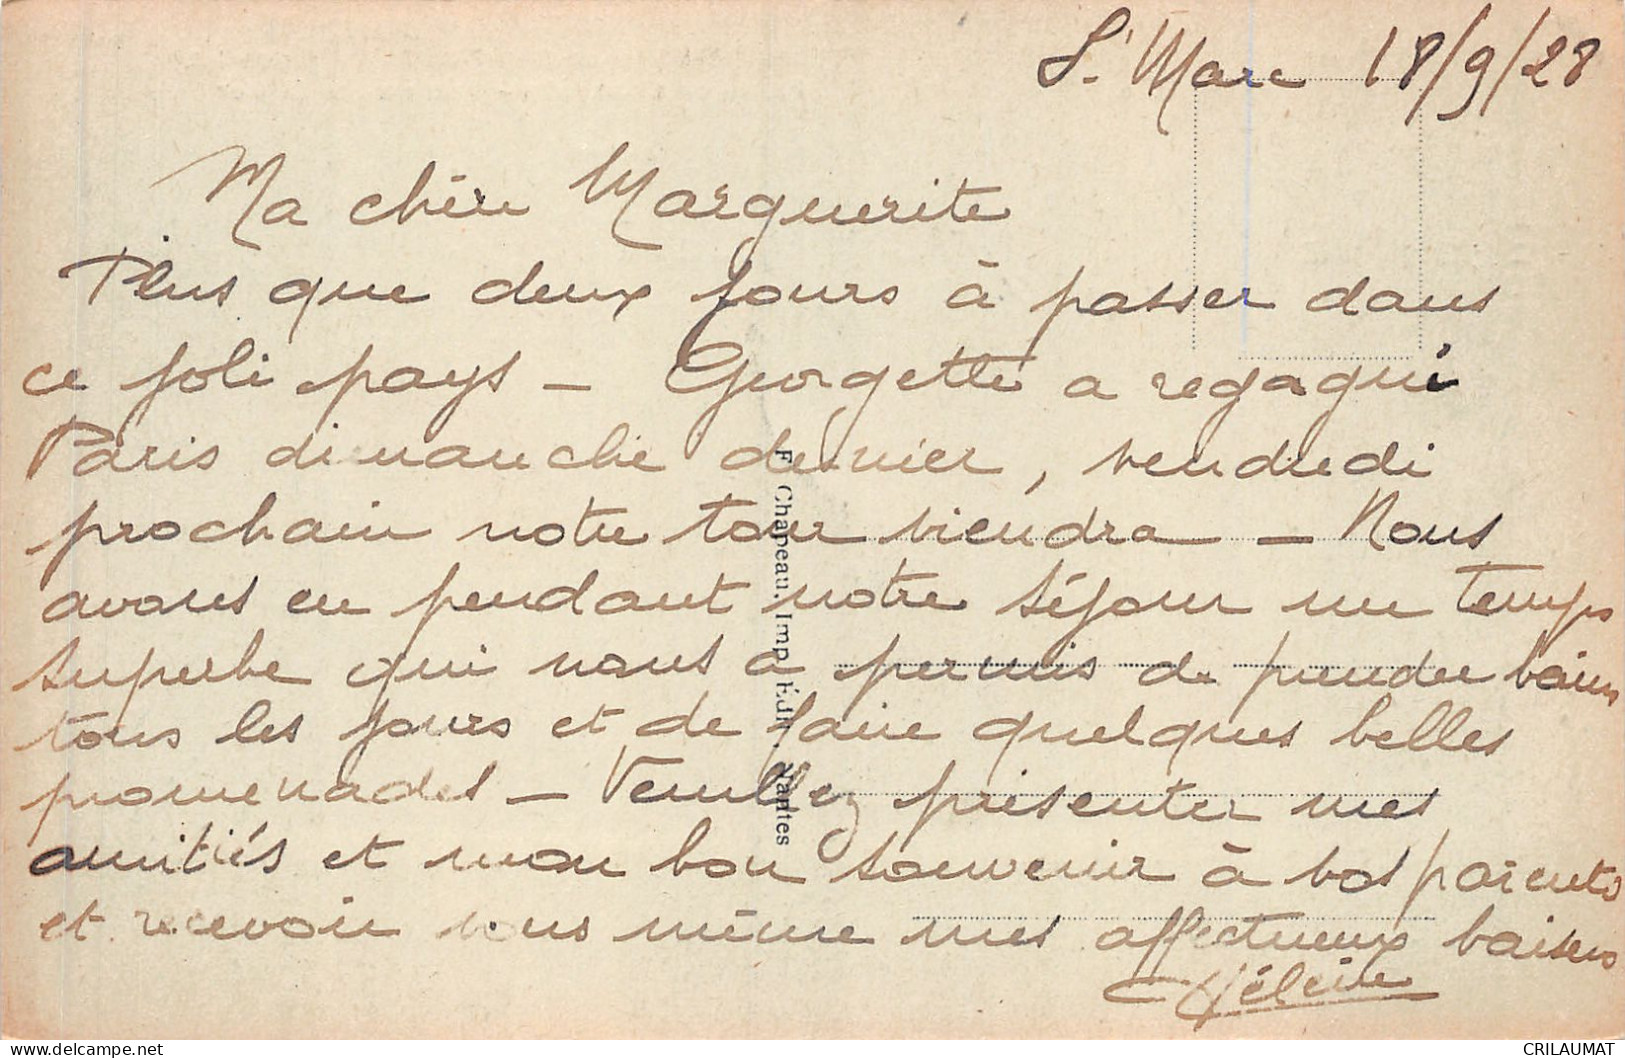 St Marc 18/9/28
Ma chère Marguerite
Plus que deux jours à passer dans
ce joli pays - Georgette a regagné
Paris dimanche dernier, vendredi
prochain notre tour viendra - Nous
avons eu pendant notre séjour un temps
superbe qui nous a permis de prendre bains
tous les jours et de faire quelques belles
promenades - Veuillez présenter mes
amitiés et mon bon souvenir à vos parents
et recevoir vous même mes affectueux baisers
Hélène
F. Chapeau, Imp. Édit. Nantes
Delcampe.net
CRILAUMAT